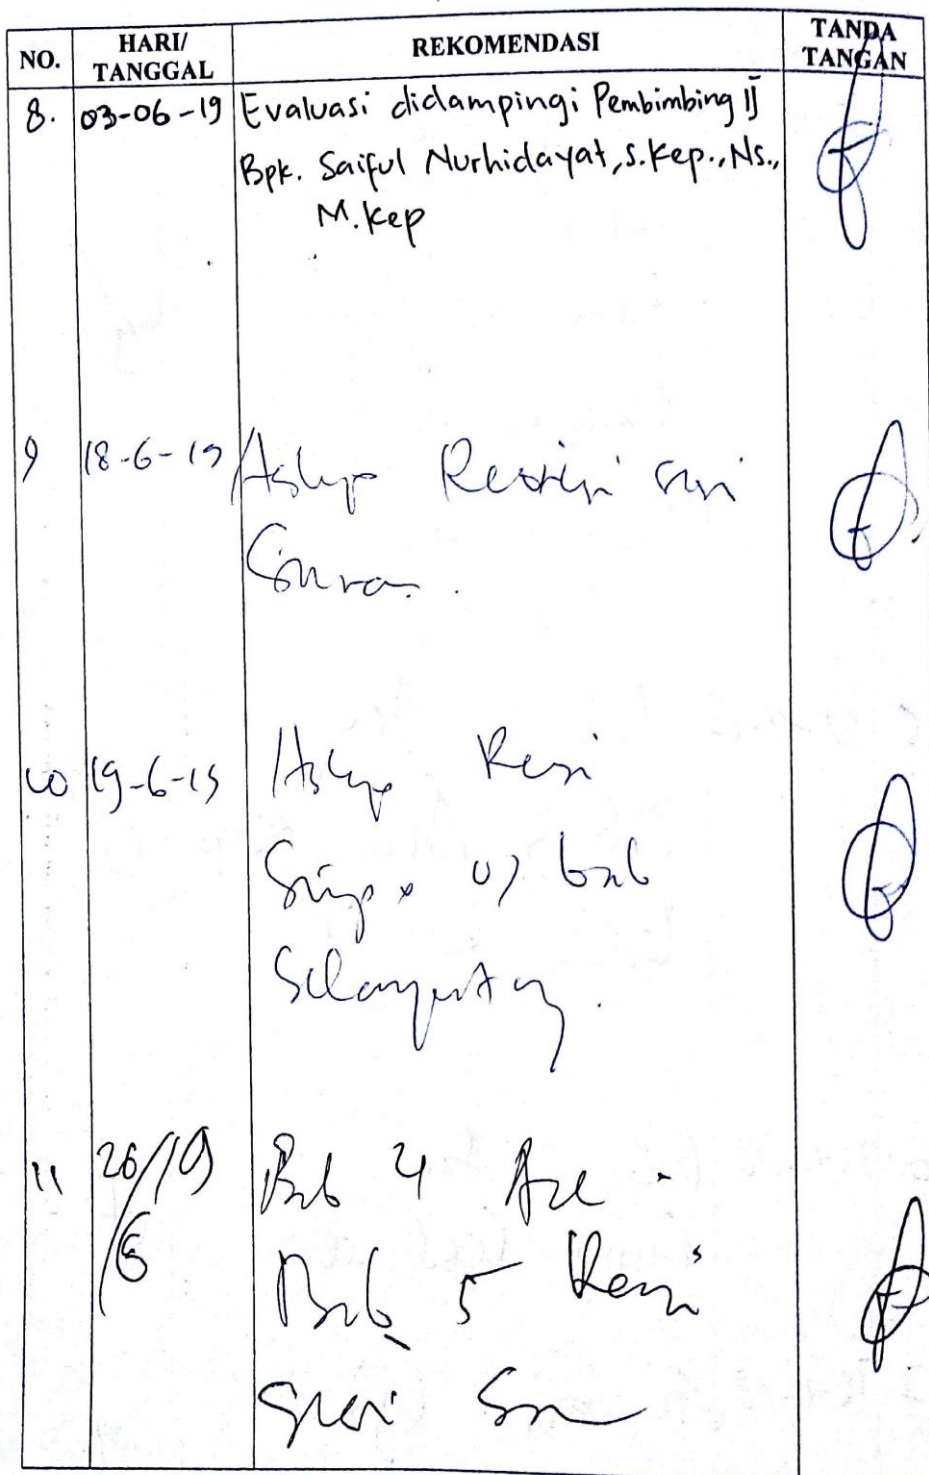 NO. HARI/ TANGGAL REKOMENDASI TANDA TANGAN
8. 03-06-19 Evaluasi didampingi Pembimbing II
Bpk. Saiful Nurhidayat, S.Kep., Ns.,
M.Kep
9 18-6-19 Askep
10 19-6-19 Askep Revisi
bab
Selanjutnya.
11 26/19
/6 Bab 4 Acc.
Bab 5 Revisi